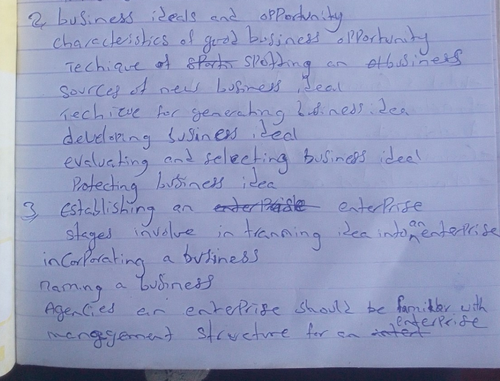 2, business ideals and opportunity
characteristics of good business opportunity
Techique of spotting an business
sources of new business ideal
Techique for generating business idea
developing business ideal
evaluating and selecting business ideel
Protecting business idea
3, Establishing an enterprise
stages involve in tranning idea into an enterprise
incorporating a business
naming a business
Agencies an enterprise should be familier with
management structure for an enterprise